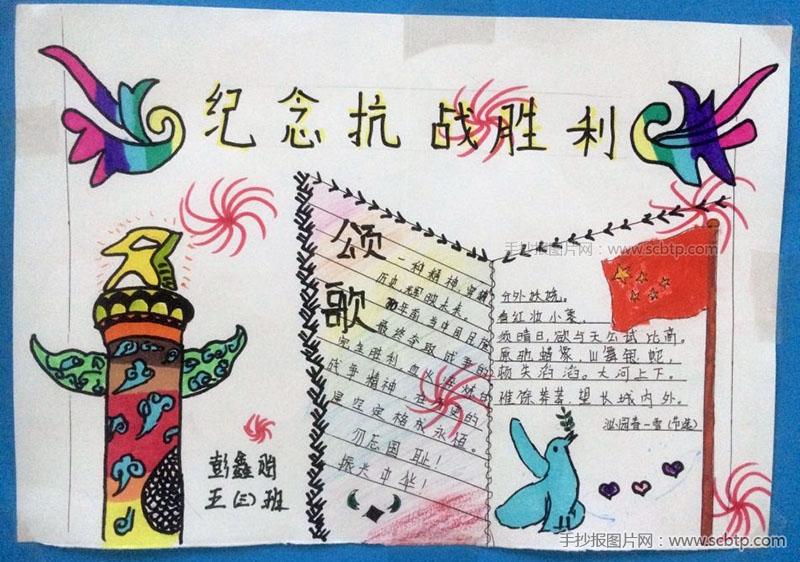 纪念抗战胜利
手抄报图片网：www.scbtp.com
颂歌
一种精神穿越
历史,辉映未来。
70年前,当中国
最终夺取战争的
完全胜利,血火淬炼的
战争精神,在历史的
星空定格成永恒。
勿忘国耻!
振兴中华!
分外妖娆。
看红妆小裹,
须晴日,欲与天公试比高。
原驰蜡象,山舞银蛇,
顿失滔滔。大河上下。
惟馀莽莽,望长城内外。
沁园春一雪(节选)
彭鑫贻
五(三)班
手抄报图片网：www.scbtp.com